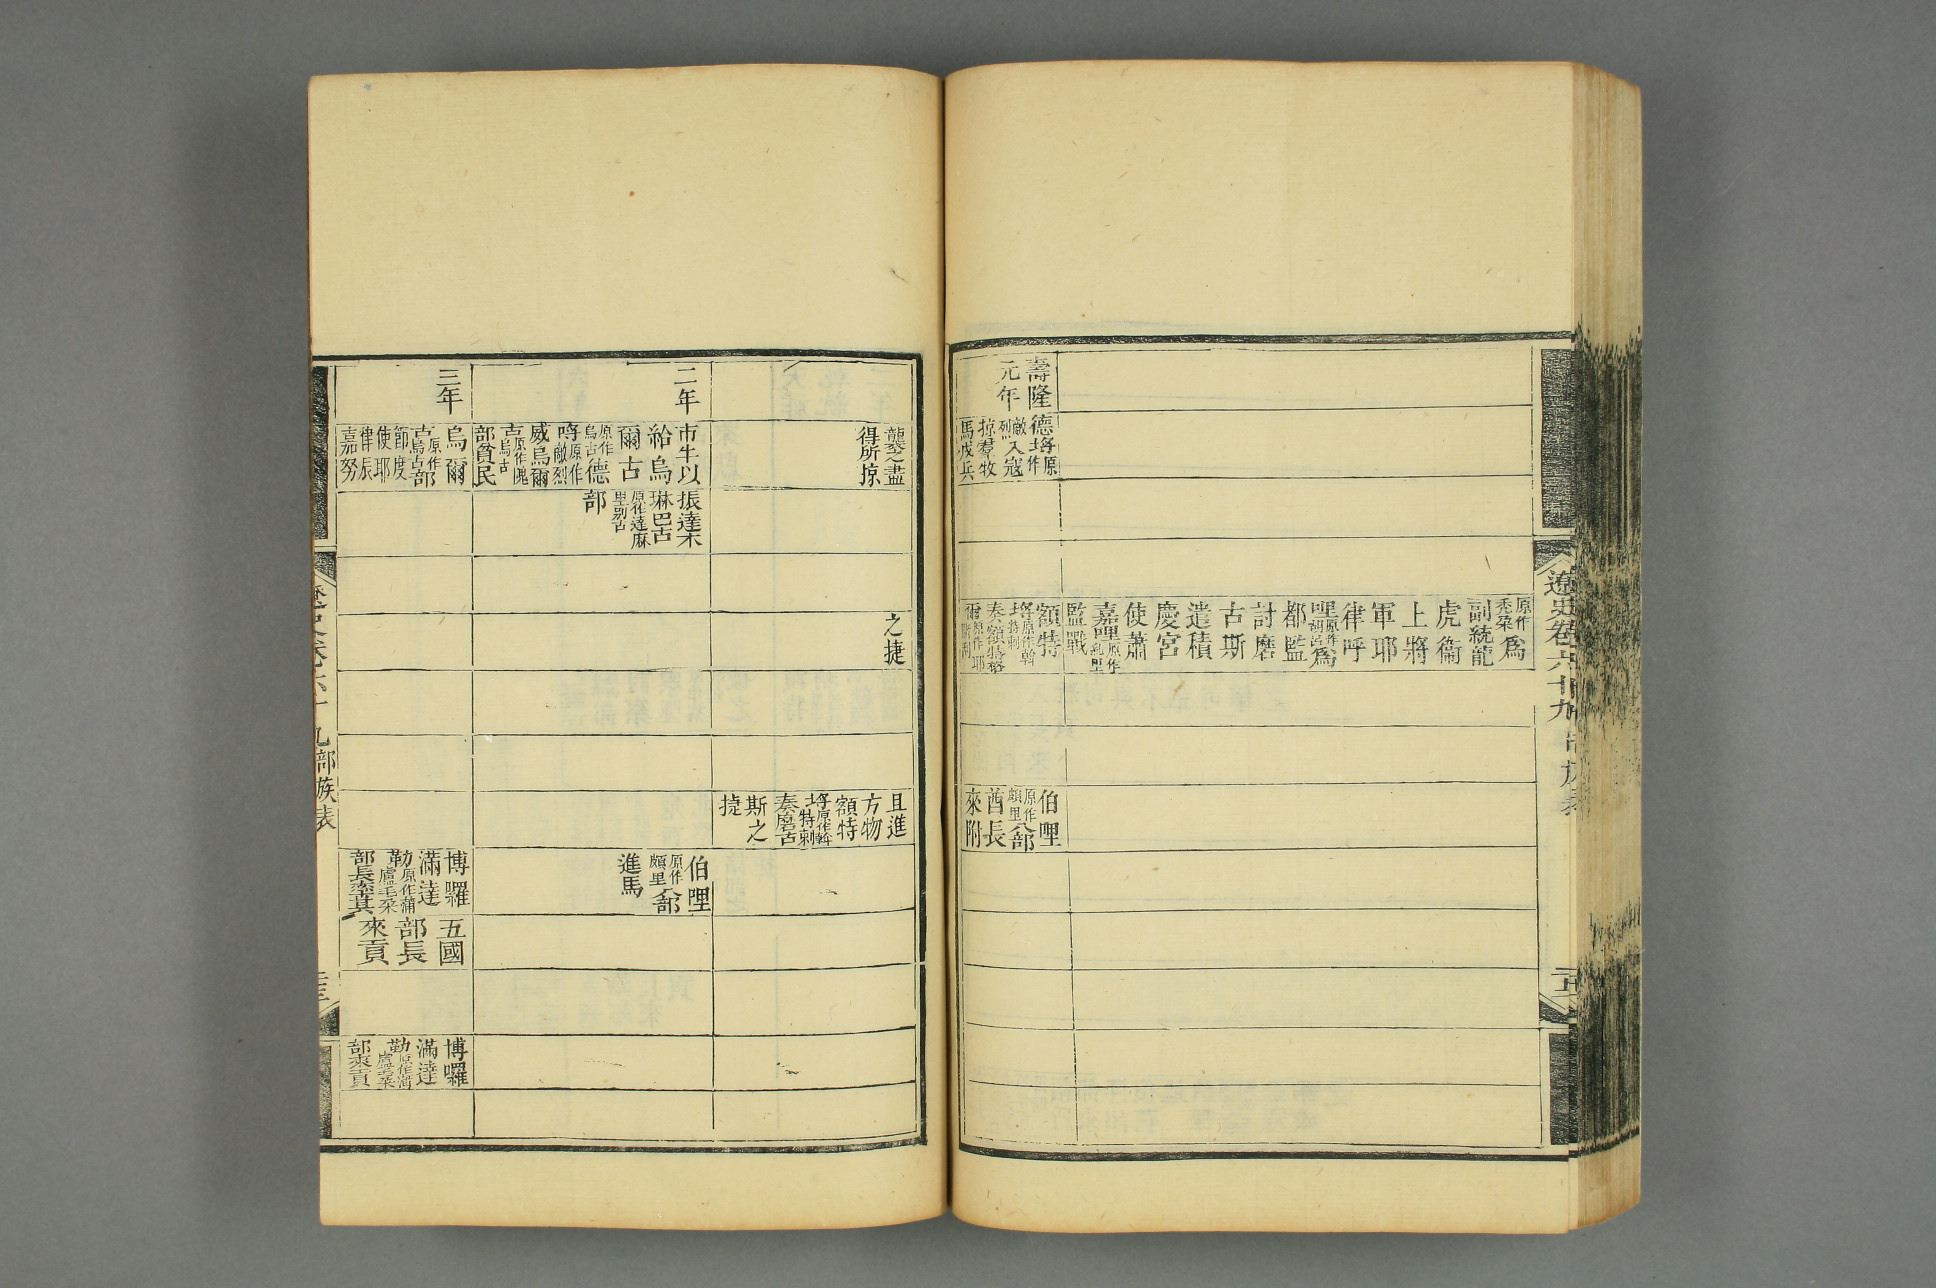 遼史卷六十九 部族表
原作
禿朶爲
副統龍
虎衞
上將
軍耶
律呼
哩原作
胡呂爲
都監
討磨
古斯
遣積
慶宮
使蕭
嘉哩原作
糺里
監戰
額特
埒原作斡
特剌
奏額特格
爾原作耶
壽隆
元年
德埒原
作
敵
烈入寇
掠羣牧
馬戍兵
伯哩
原作
頗里八部
酋長
來附
襲之盡
得所掠
之捷
且進
方物
額特
埒原作斡
特剌
奏磨古
斯之
捷
二年
市牛以
給烏
爾古
原作
烏古德
埒原作
敵烈
威烏爾
古原作隗
烏古
部貧民
振達木
琳巴古
原作達麻
里別古
部
伯哩
原作
頗里八部
進馬
三年
烏爾
古原作
烏古部
節度
使耶
律振
嘉努
博囉
滿達
勒原作蒲
盧毛朶
部長率其
五國
部長
來貢
博囉
滿達
勒原作蒲
盧毛朶
部來貢
遼史卷六十九 部族表